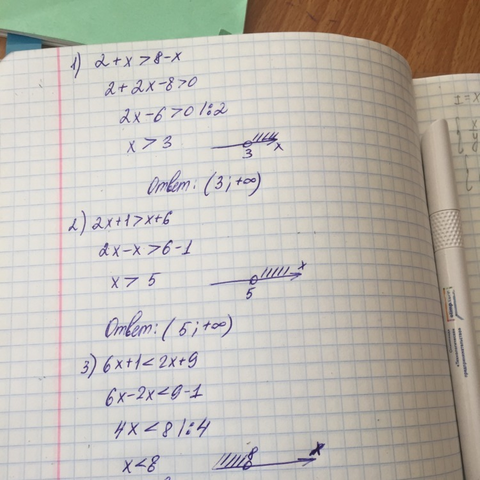 1) 2+x>8-x
2+2x-8>0
2x-6>0 |:2
x>3
3 x
Ответ: (3;+∞)
2) 2x+1>x+6
2x-x>6-1
x>5
5 x
Ответ: (5;+∞)
3) 6x+1<2x+9
6x-2x<9-1
4x<8 |:4
x<8
8 x